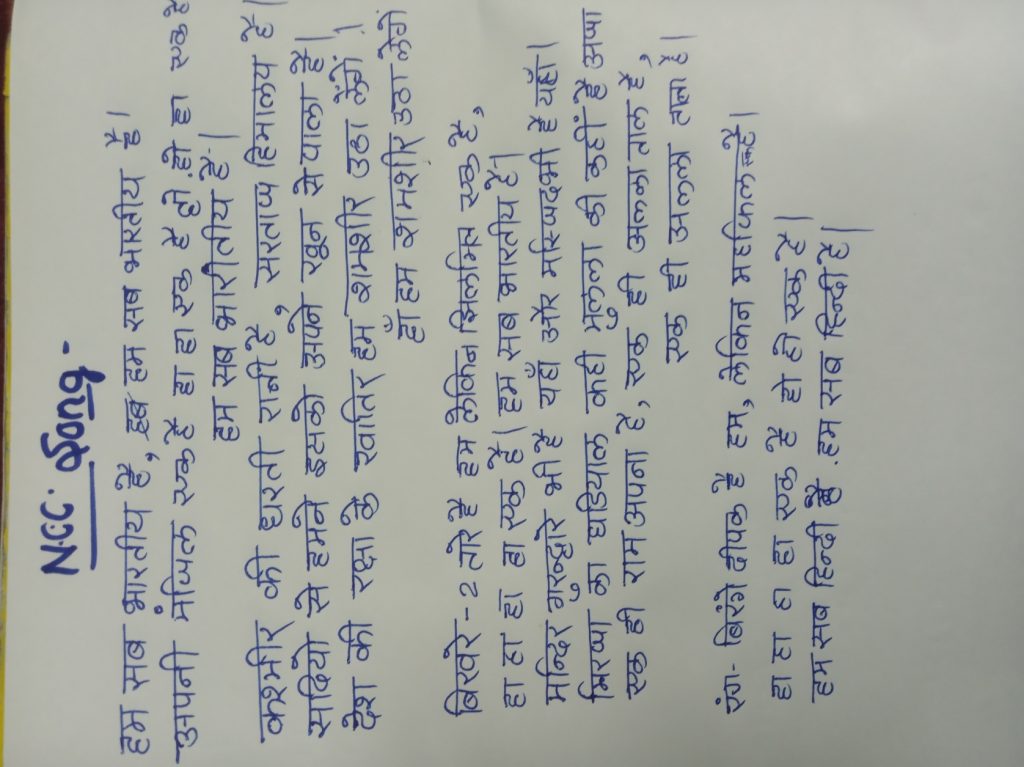 N.C.C. Song -
हम सब भारतीय है, हम सब भारतीय है।
अपनी मंजिल एक है हा हा एक है हो हो हा एक है
हम सब भारीतीय है।
कश्मीर की धरती रानी है, सरताज हिमालय है।
सादियो से हमने इसको अपने खून से पाला है।
देश की रक्षा के खातिर हम शमशीर उठा लेंगे।
हाँ हम शमशीर उठा लेंगे
बिखरे-2 तोरे है हम लेकिन झिलमिल एक है,
हा हा हा हा एक है। हम सब भारतीय है।
मन्दिर गुरुद्वारे भी है यहाँ और मस्जिदभी है यहाँ।
गिरजा का घडियाल कही मुल्ला की कही है अजा
एक ही राम अपना है, एक ही अल्ला ताला है,
एक ही अल्ला ताला है।
रंग-बिरंगे दीपक है हम, लेकिन महफिल एक है।
हा हा हा हा एक है हो हो एक है।
हम सब हिन्दी है. हम सब हिन्दी है।